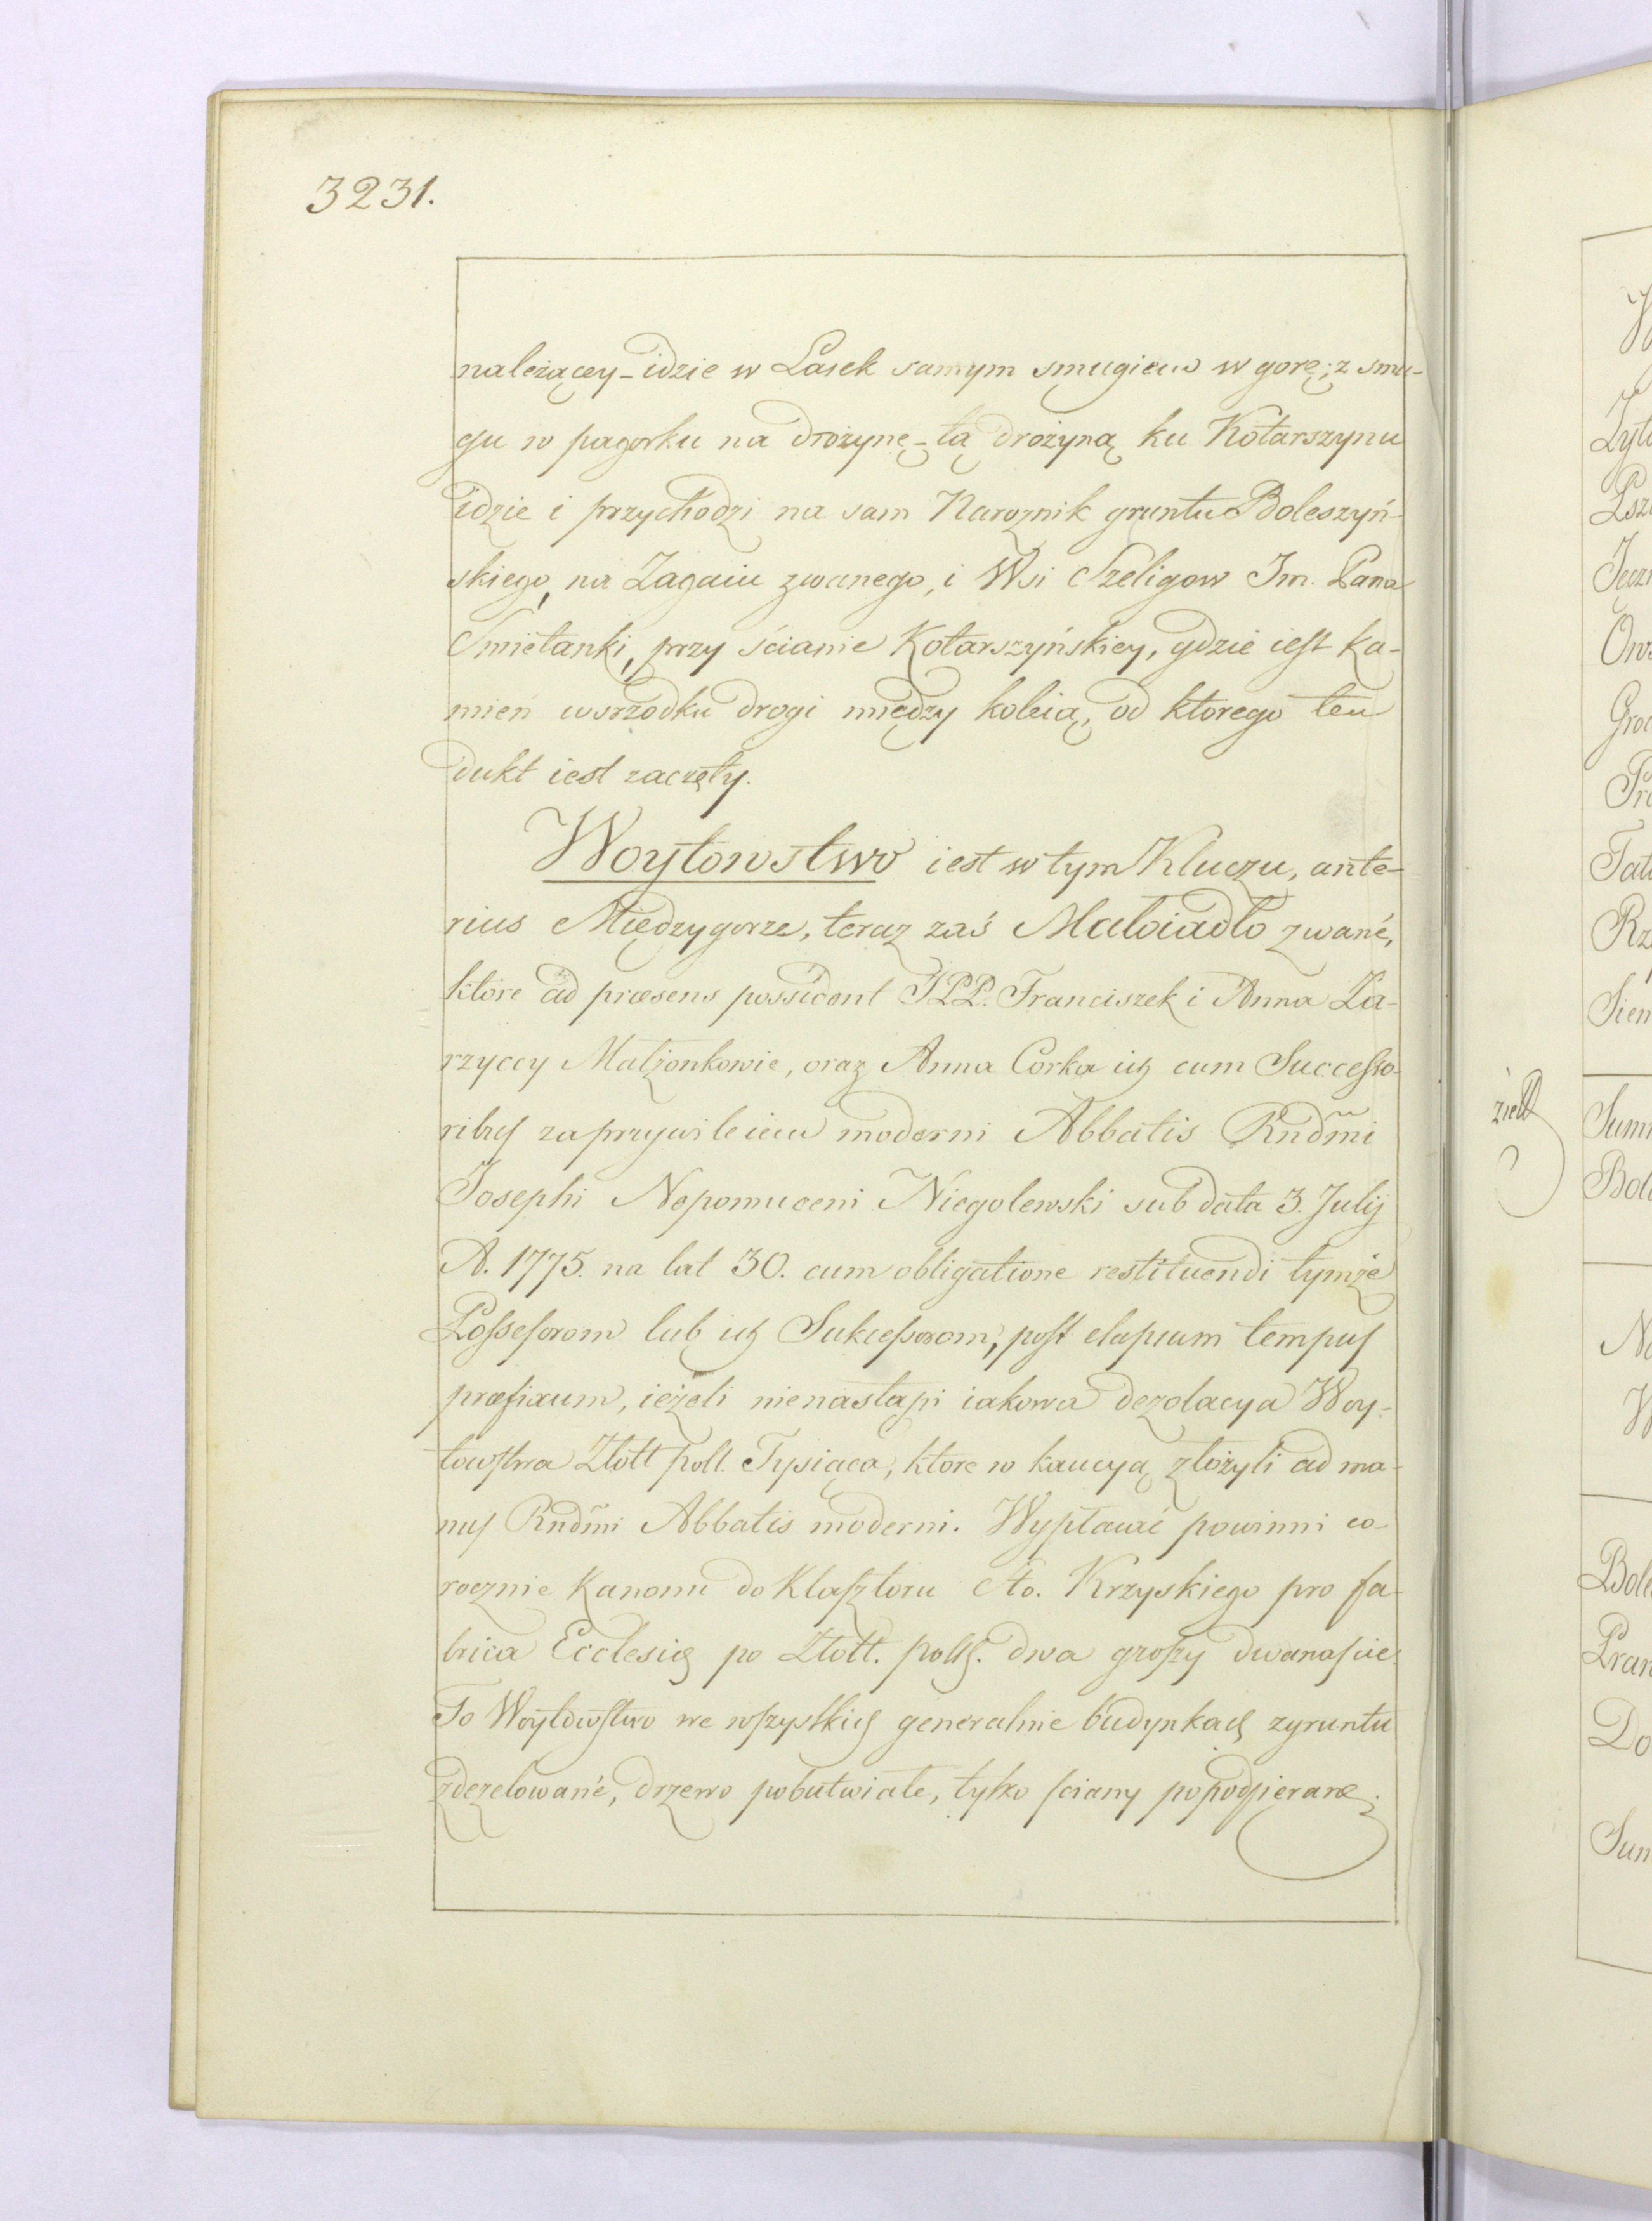 3231.
należącey – idzie w Lasek samym smugiem w gorę; z smu-
gu w pagorku na drożynę – tą drożyną ku Kotarszynu
idzie i przychodzi na sam Naroznik gruntu Boleszyń-
skiego, na Zagaiu zwanego, i Wsi Szeligow Im. Pana
Smietanki, przy ścianie Kotarszyńskiey, gdzie iest ka-
mien wsrzodku drogi między koleią, od ktorego ten
dukt iest zaczęty.
Woytowstwo iest w tym Kluczu, ante-
rius Międzygorze, teraz zaś Małoiadło zwané,
ktore ad præsens possident IPP. Franciszek i Anna Za-
rzyccy Małżonkowie, oraz Anna Corka ich cum Successo-
ribus za przywileiem moderni Abbatis Rndm̃i
Josephi Nepomuceni Niegolewski sub data 3. Julij
A. 1775. na lat 30. cum obligatione restituendi tymże
Possessorom lub ich Sukcessorom, post elapsum tempus
præfixum, ieżeli nienastąpi iakowa dezolacya Woy-
towstwa Złott poll. Tysiąca, ktore w kaucyą złożyli ad ma-
nus Rndm̃i Abbatis moderni. Wypłacać powinni co-
rocznie Kanonu do Klasztoru Sto. Krzyskiego pro fa-
brica Ecclesię po Złott. polls. dwa groszy dwanascie.
To Woytowstwo we wszystkich generalnie budynkach zgruntu
zdezelowané, drzewo pobutwiałe, tylko sciany popodpierane.
Sum
Bol